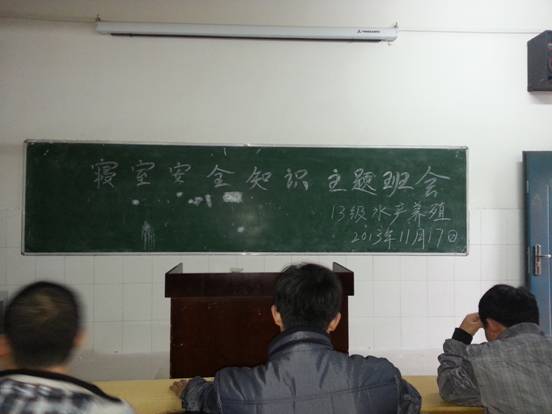 寝室安全知识主题班会
13级水产养殖
2013年11月17日